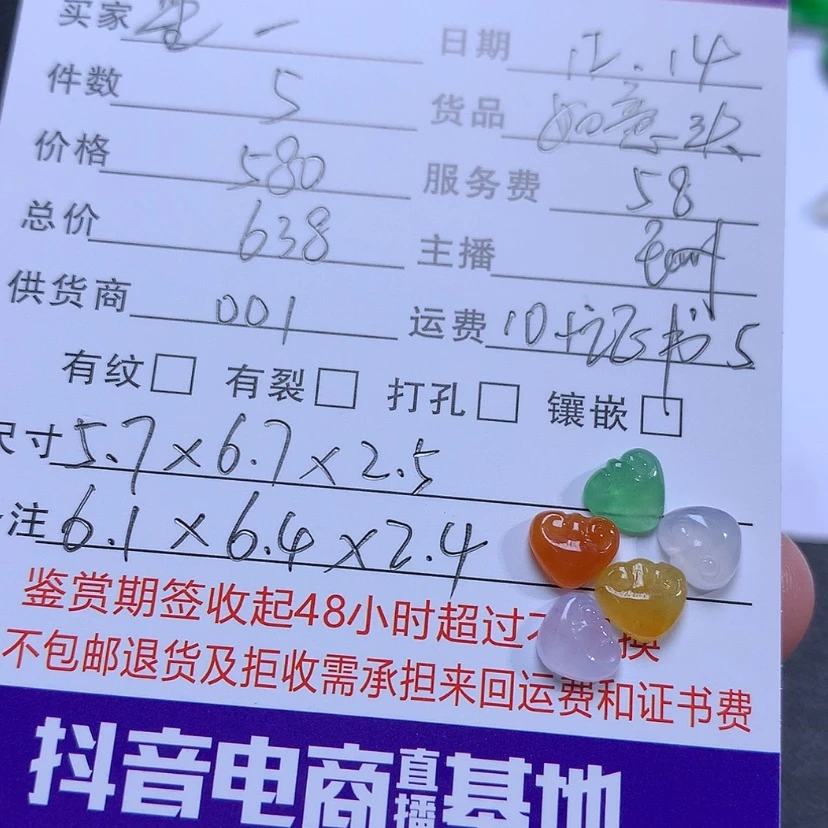 买家 一 日期 12.14
件数 5 货品 如意头
价格 580 服务费 58
总价 638 主播
供货商 001 运费 10+证书5
有纹 有裂 打孔 镶嵌
尺寸 5.7×6.7×2.5
注 6.1×6.4×2.4
鉴赏期签收起48小时超过不 换
不包邮退货及拒收需承担来回运费和证书费
抖音电商直播基地